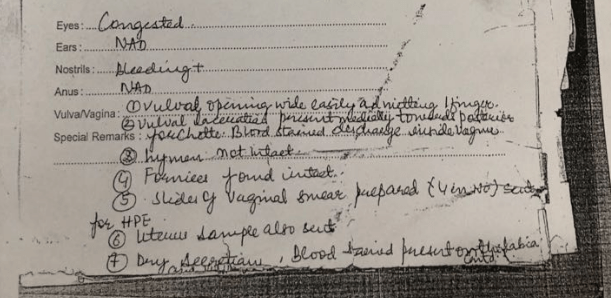 Eyes : Congested
Ears : NAD
Nostrils : Bleeding +
Anus : NAD
Vulva/Vagina : ① Vulval opening wide easily admitting 1 finger.
② Vulval laceration present medially towards posterior
Special Remarks : fourchette. Blood stained discharge inside vagina
③ hymen not intact
④ Fornices found intact.
⑤ Slides of vaginal smear prepared (4 in no) sent
for HPE
⑥ Uterus sample also sent
⑦ Dry secretion, Blood stained present on labia